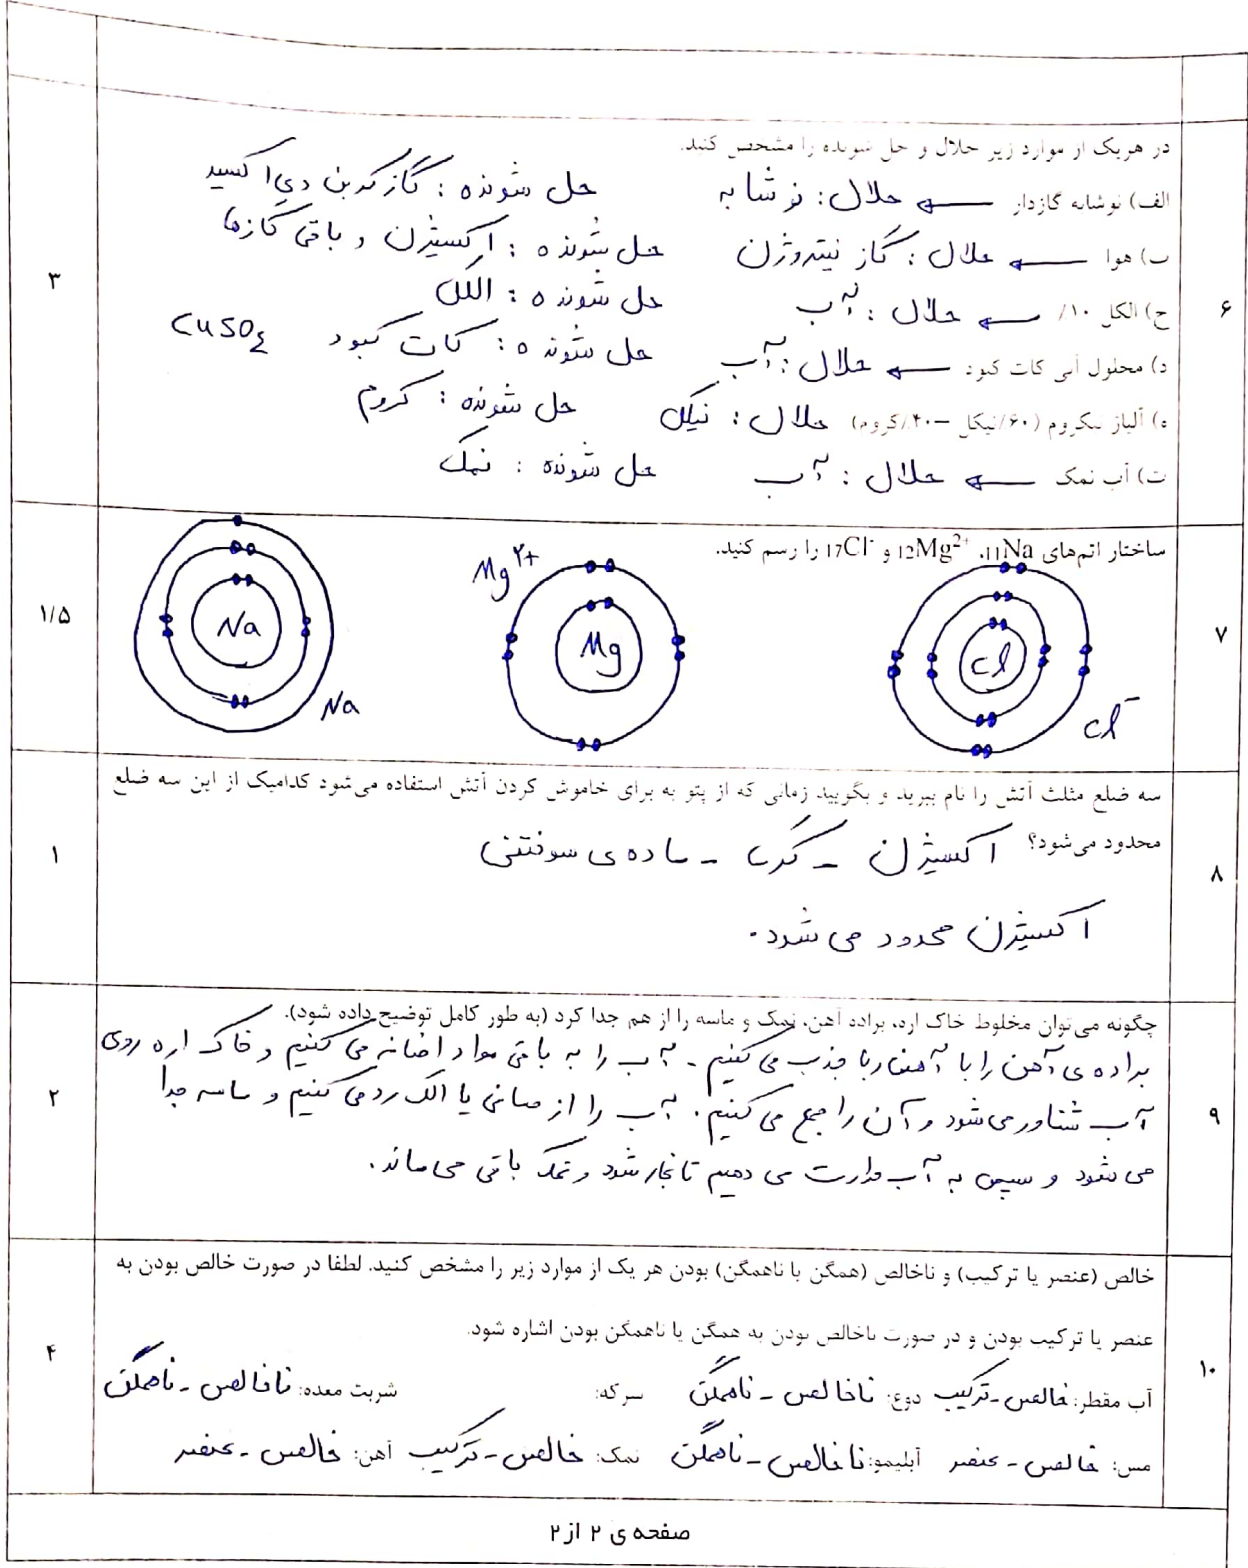 ۶
در هریک از موارد زیر حلال و حل شونده را مشخص کنید.
۳
الف) نوشابه گازدار ← حلال: نوشابه حل شونده: گاز کربن دی اکسید
ب) هوا ← حلال: گاز نیتروژن حل شونده: اکسیژن و باقی گازها
ج) الکل ۱۰٪ ← حلال: آب حل شونده: الکل
د) محلول آبی کات کبود ← حلال: آب حل شونده: کات کبود CuSO4
ه) آلیاژ نیکروم (۶۰٪نیکل –۴۰٪کروم) حلال: نیکل حل شونده: کروم
ت) آب نمک ← حلال: آب حل شونده: نمک
۷
ساختار اتم‌های 11Na، 12Mg2+ و 17Cl- را رسم کنید.
۱/۵
Cl Cl-
Mg Mg۲+
Na Na
۸
سه ضلع مثلث آتش را نام ببرید و بگویید زمانی که از پتو به برای خاموش کردن آتش استفاده می‌شود کدامیک از این سه ضلع
محدود می‌شود؟ اکسیژن - گرما - ماده ی سوختنی
۱
اکسیژن محدود می شود.
۹
چگونه می‌توان مخلوط خاک اره، براده آهن، نمک و ماسه را از هم جدا کرد (به طور کامل توضیح داده شود).
۲
براده ی آهن را با آهنربا جذب می کنیم - آب را به باقی مواد اضافه می کنیم و خاک اره روی
آب شناور می شود و آن را جمع می کنیم. آب را از صافی یا الک رد می کنیم و ماسه جدا
می شود و سپس به آب حرارت می دهیم تا بخار شود و نمک باقی می ماند.
۱۰
خالص (عنصر یا ترکیب) و ناخالص (همگن با ناهمگن) بودن هر یک از موارد زیر را مشخص کنید. لطفا در صورت خالص بودن به
عنصر یا ترکیب بودن و در صورت ناخالص بودن به همگن یا ناهمگن بودن اشاره شود.
۴
آب مقطر: خالص - ترکیب دوغ: ناخالص - ناهمگن سرکه: شربت معده: ناخالص - ناهمگن
مس: خالص - عنصر آبلیمو: ناخالص - ناهمگن نمک: خالص - ترکیب آهن: خالص - عنصر
صفحه ی ۲ از ۲